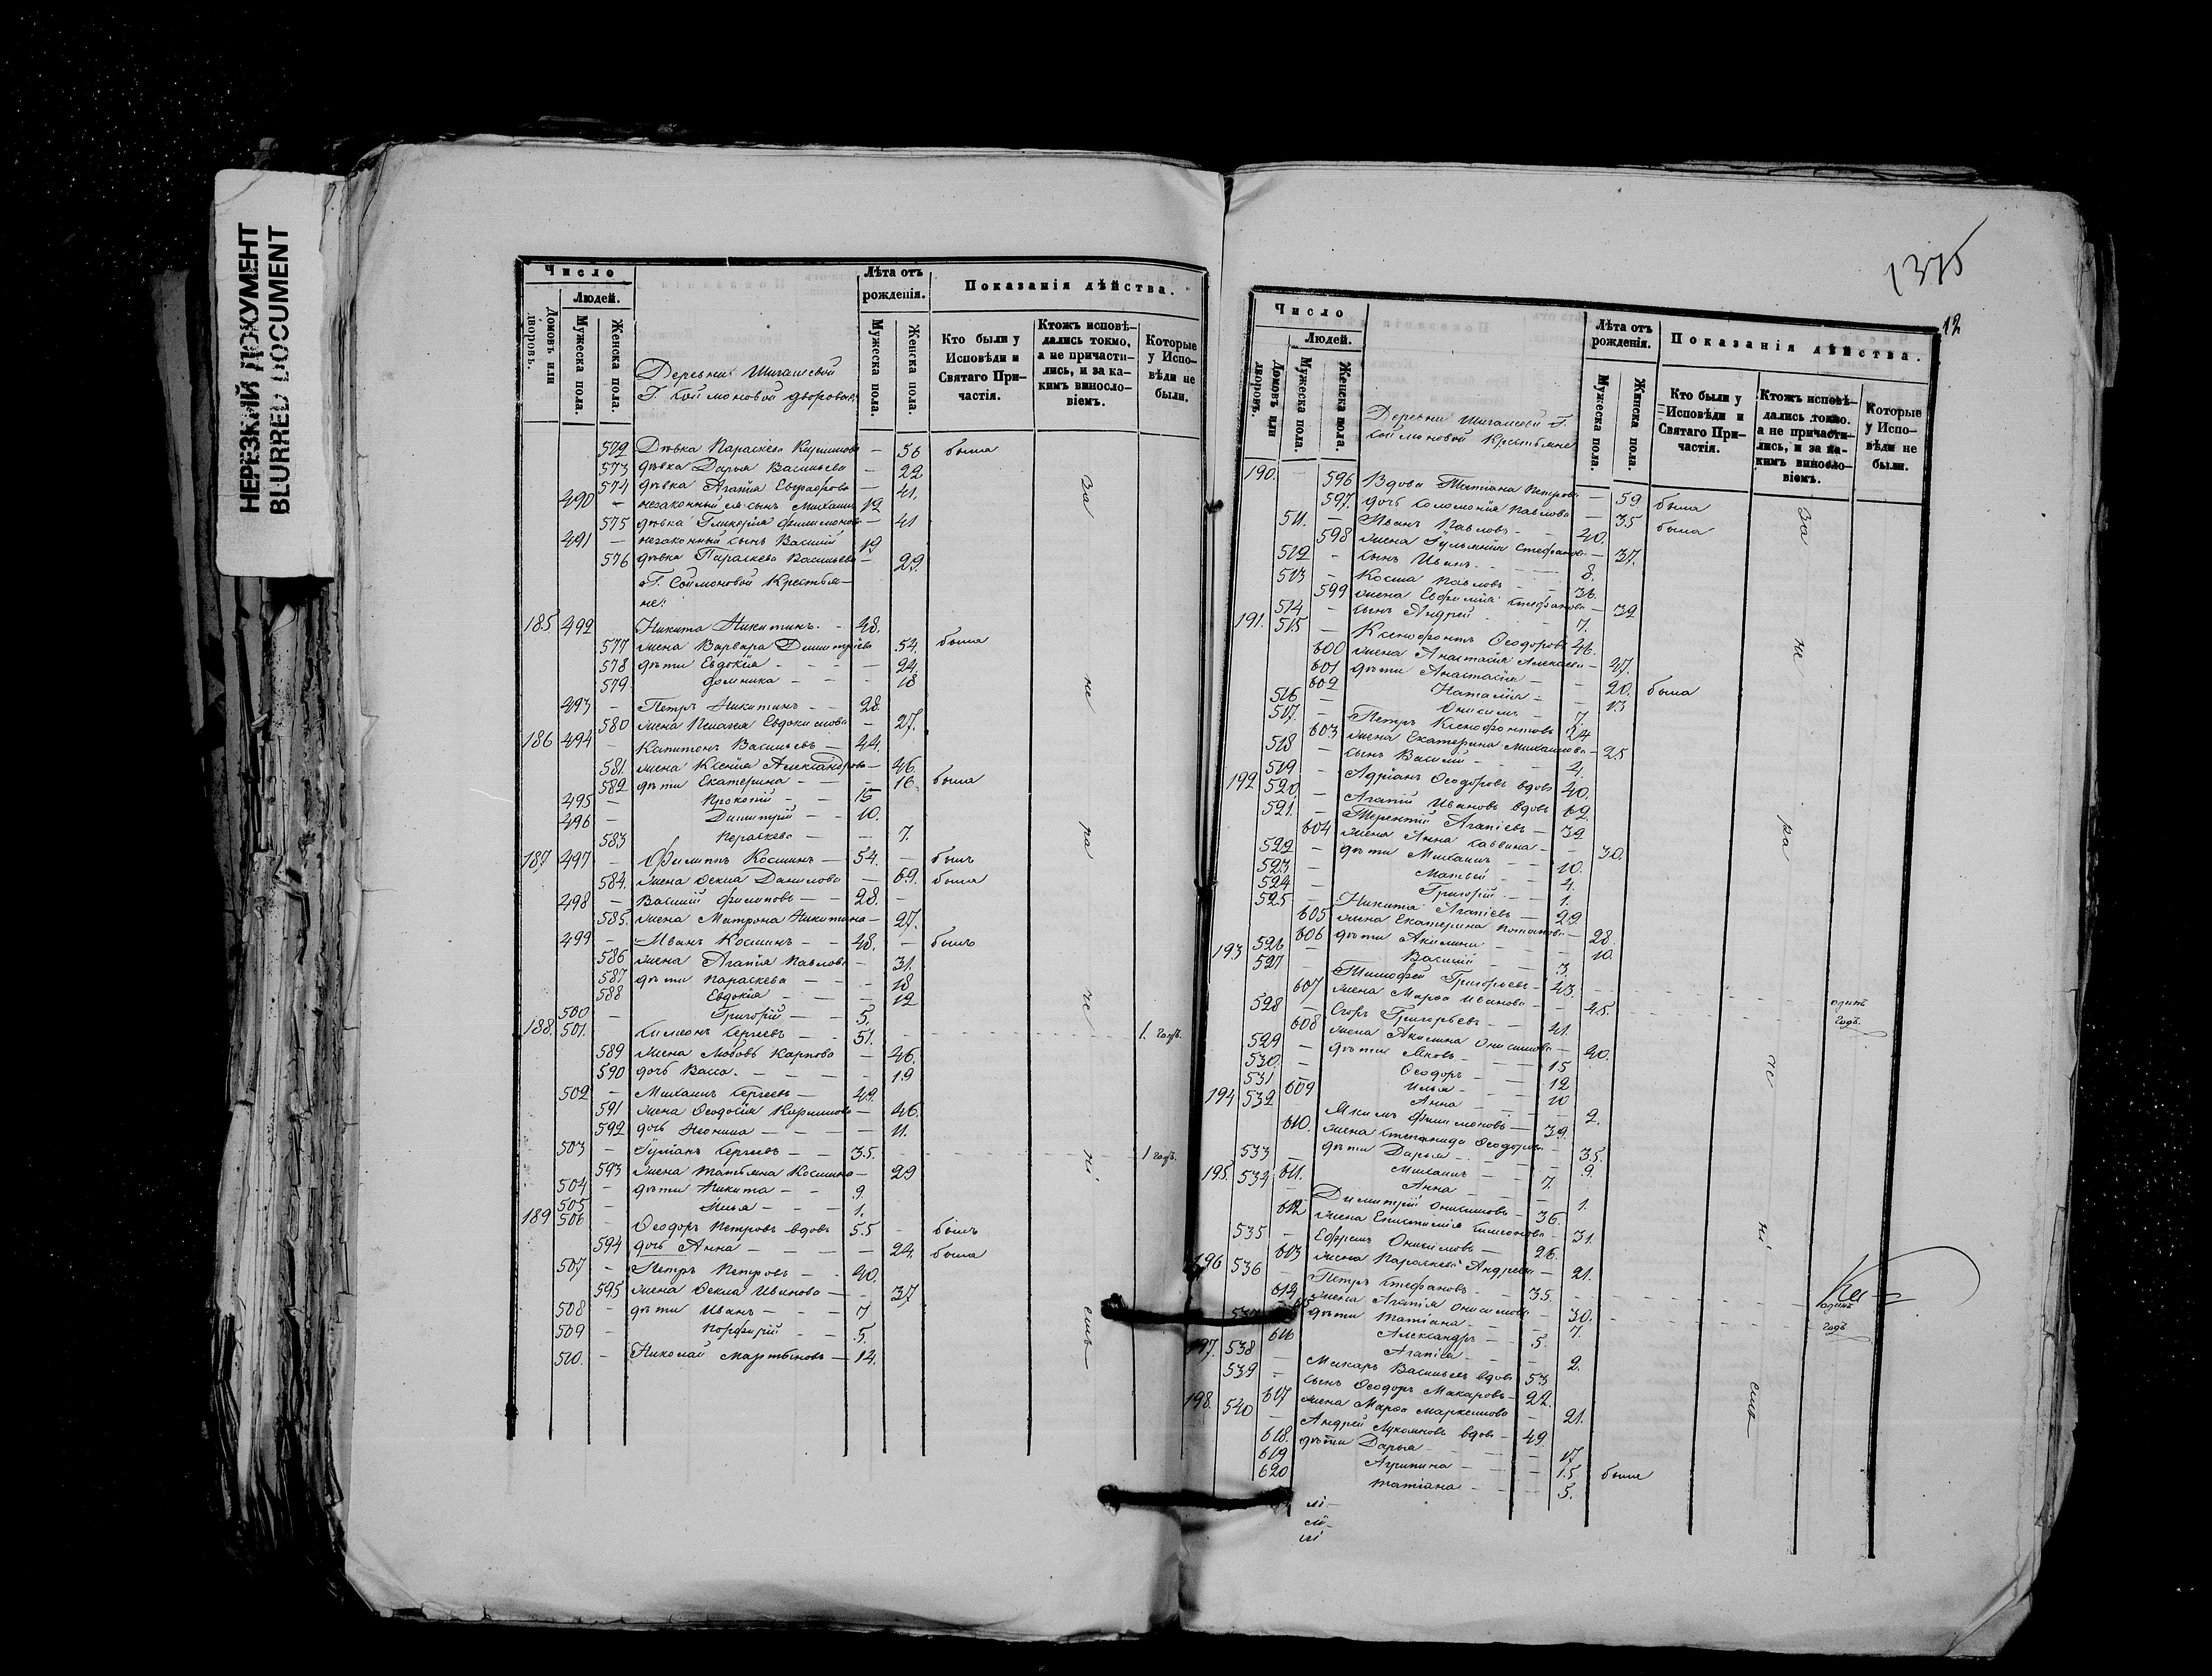 НЕРЕЗКИЙ ДОКУМЕНТ
BLURRED DOCUMENT
Число
Людей.
Домовъ или дворовъ.
Мужеска пола.
Женска пола.
Деревни Шигаловой
Г. Соймоновой дворовые
Лѣта отъ рожденія.
Мужеска пола.
Женска пола.
Показанія дѣйства.
Кто были у Исповѣди и Святаго Причастія.
Ктожъ исповѣдались токмо, а не причастились, и за какимъ винословіемъ.
Которые у Исповѣди не были.
572 Дѣвка Параскева — 56 была
573 дѣвка Дарья Васильева — 22
574 дѣвка Агапія Евграфова — 41.
490 — незаконный ея сынъ Михаилъ 12
575 дѣвка Гликерія Филимонова — 41
491 — незаконный сынъ Василій 19
576 дѣвка Параскева Васильева — 29.
Г. Соймоновой Крестьяне:
185 492 — Никита Никитинъ. — 48.
577 жена Варвара Димитріева 54. была
578 дѣти Евдокія — 24.
579. Домника — 18
493 — Петръ Никитинъ — 28.
580 жена Пелагея Евдокимова — 27.
186 494 — Капитонъ Васильевъ — 44.
581. жена Ксенія Александрова — 46.
582 дѣти Екатерина — 16. была
495 — Прокопій — 15
496 — Димитрій — 10.
583 Параскева — 7.
187 497 — Филиппъ Косминъ — 54. — былъ
584. жена Ѳекла Данилова — 69. была
498 — Василій Филиповъ — 28. —
585. жена Матрона Никитина — 27.
499 — Иванъ Косминъ — 48. — былъ
586 жена Агапія Павлова — 31.
587 дѣти Параскева — 18
588 Евдокія — 12
500 — Григорій — 5.
188. 501. — Симеонъ Сергѣевъ — 51. 1. годъ.
589 жена Любовь Карпова — 46.
590 дочь Васса. — 19
502 — Михаилъ Сергѣевъ — 49.
591 жена Ѳеодосія — 46.
592 дочь Неонила — 11.
503 — Гуріанъ Сергѣевъ — 35. 1 годъ.
593 жена Татьяна Космина — 29
504 — дѣти Никита — 9.
505 — Илья — 1.
189 506 — Ѳеодоръ Петровъ вдовъ 55 — былъ
594 дочь Анна — 24. была
507 — Петръ Петровъ — 40.
595 жена Ѳекла Иванова — 37
508 — дѣти Иванъ — 7
509 — Порфирій — 5.
510. — Николай Мартыновъ — 14.
За не ра че ні емъ
1375
12
Число
Людей.
Домовъ или дворовъ.
Мужеска пола.
Женска пола.
Деревни Шигаловой Г.
Соймоновой Крестьяне
Лѣта отъ рожденія.
Мужеска пола.
Женска пола.
Показанія дѣйства.
Кто были у Исповѣди и Святаго Причастія.
Ктожъ исповѣдались токмо. а не причастились, и за какимъ винословіемъ.
Которые у Исповѣди не были.
190. — 596 Вдова Татіана Петрова — 59 была
597. дочь Соломонія Павлова — 35 была
511. — Иванъ Павловъ — 40.
598 жена Стефанова — 37.
512 — сынъ Иванъ. — 8.
513 — Косма Павловъ — 36.
599 жена Евфимія Стефанова — 32
514 — сынъ Андрей — 7.
191. 515 — Ксенофонтъ Ѳеодоровъ 46.
600 жена Анастасія Алексѣева — 47.
601 дѣти Анастасія — 20. была
602 Наталія — 13
516 — Онисимъ — 7.
517. — Петръ Ксенофонтовъ 24
603 жена Екатерина Михаилова — 25
518 — сынъ Василій — 4.
519 — Адріанъ Ѳеодоровъ вдовъ 40.
192 520. — Агапій Ивановъ вдовъ 62.
521. — Терентій Агапіевъ — 32
604 жена Анна Саввина — 30.
522 — дѣти Михаилъ — 10.
523 — Матвей — 4.
524 — Григорій — 1.
525 — Никита Агапіевъ — 29.
605 жена Екатерина Потапова — 28.
606 дѣти Акилина — 10.
526 — Василій — 3.
193 527 — Тимофей Григорьевъ — 43. одинъ годъ.
607 жена Марѳа Иванова — 45.
528 — Егоръ Григорьевъ — 41.
608 жена Акилина Онисимова — 40.
529 — дѣти Яковъ — 15
530. — Ѳеодоръ — 12
531 — Илья — 10
609 Анна — 2.
194 532 — Якимъ Филимоновъ — 39.
610. жена Степанида Ѳеодорова — 35.
611. дѣти Дарья — 9.
533 — Михаилъ — 7.
Анна — 1.
195. 534 — Димитрій Онисимовъ — 36.
612 жена Епистимія Симеонова — 31.
535 — Ефремъ Онисимовъ — 26.
613 жена Параскева Андреева — 21.
196 536 — Петръ Стефановъ — 35. одинъ годъ
614 жена Агапія Онисимова — 30.
615 дѣти Татіана — 7.
537 — Александръ — 5.
616 Агапія — 2.
197. 538 — Макаръ Васильевъ вдовъ 53
539 — сынъ Ѳеодоръ Макаровъ — 22.
617 жена Марѳа — 21.
198. 540 — Андрей вдовъ — 49.
618. дѣти Дарья — 17
619 Агрипина — 15 была
620 Татіана — 5.
За не ра че ні емъ